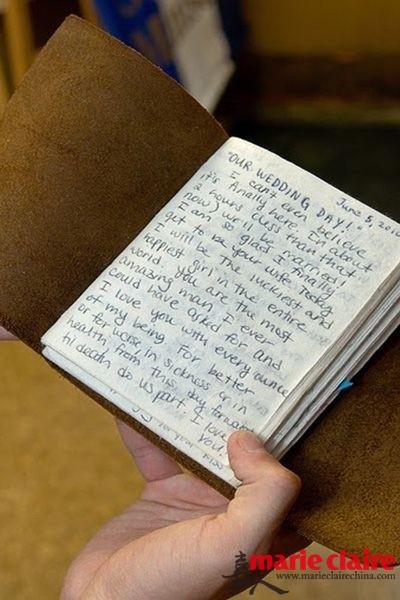 June 5, 2010
"OUR WEDDING DAY!"
I can't even believe
it's finally here. In about
2 hours (less than that
now) we'll be married!
I am so glad I finally
get to be your wife today.
I will be the luckiest and
happiest girl in the entire
world. You are the most
amazing man I ever
could have asked for and
I love you with every ounce
of my being. For better
or for worse in sickness or in
health, from this day forward
til death do us part. I love
you.
marie claire
www.marieclairechina.com